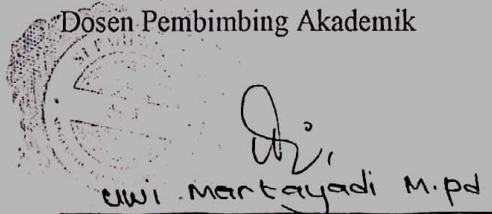 Dosen Pembimbing Akademik
uwi Martayadi M.pd